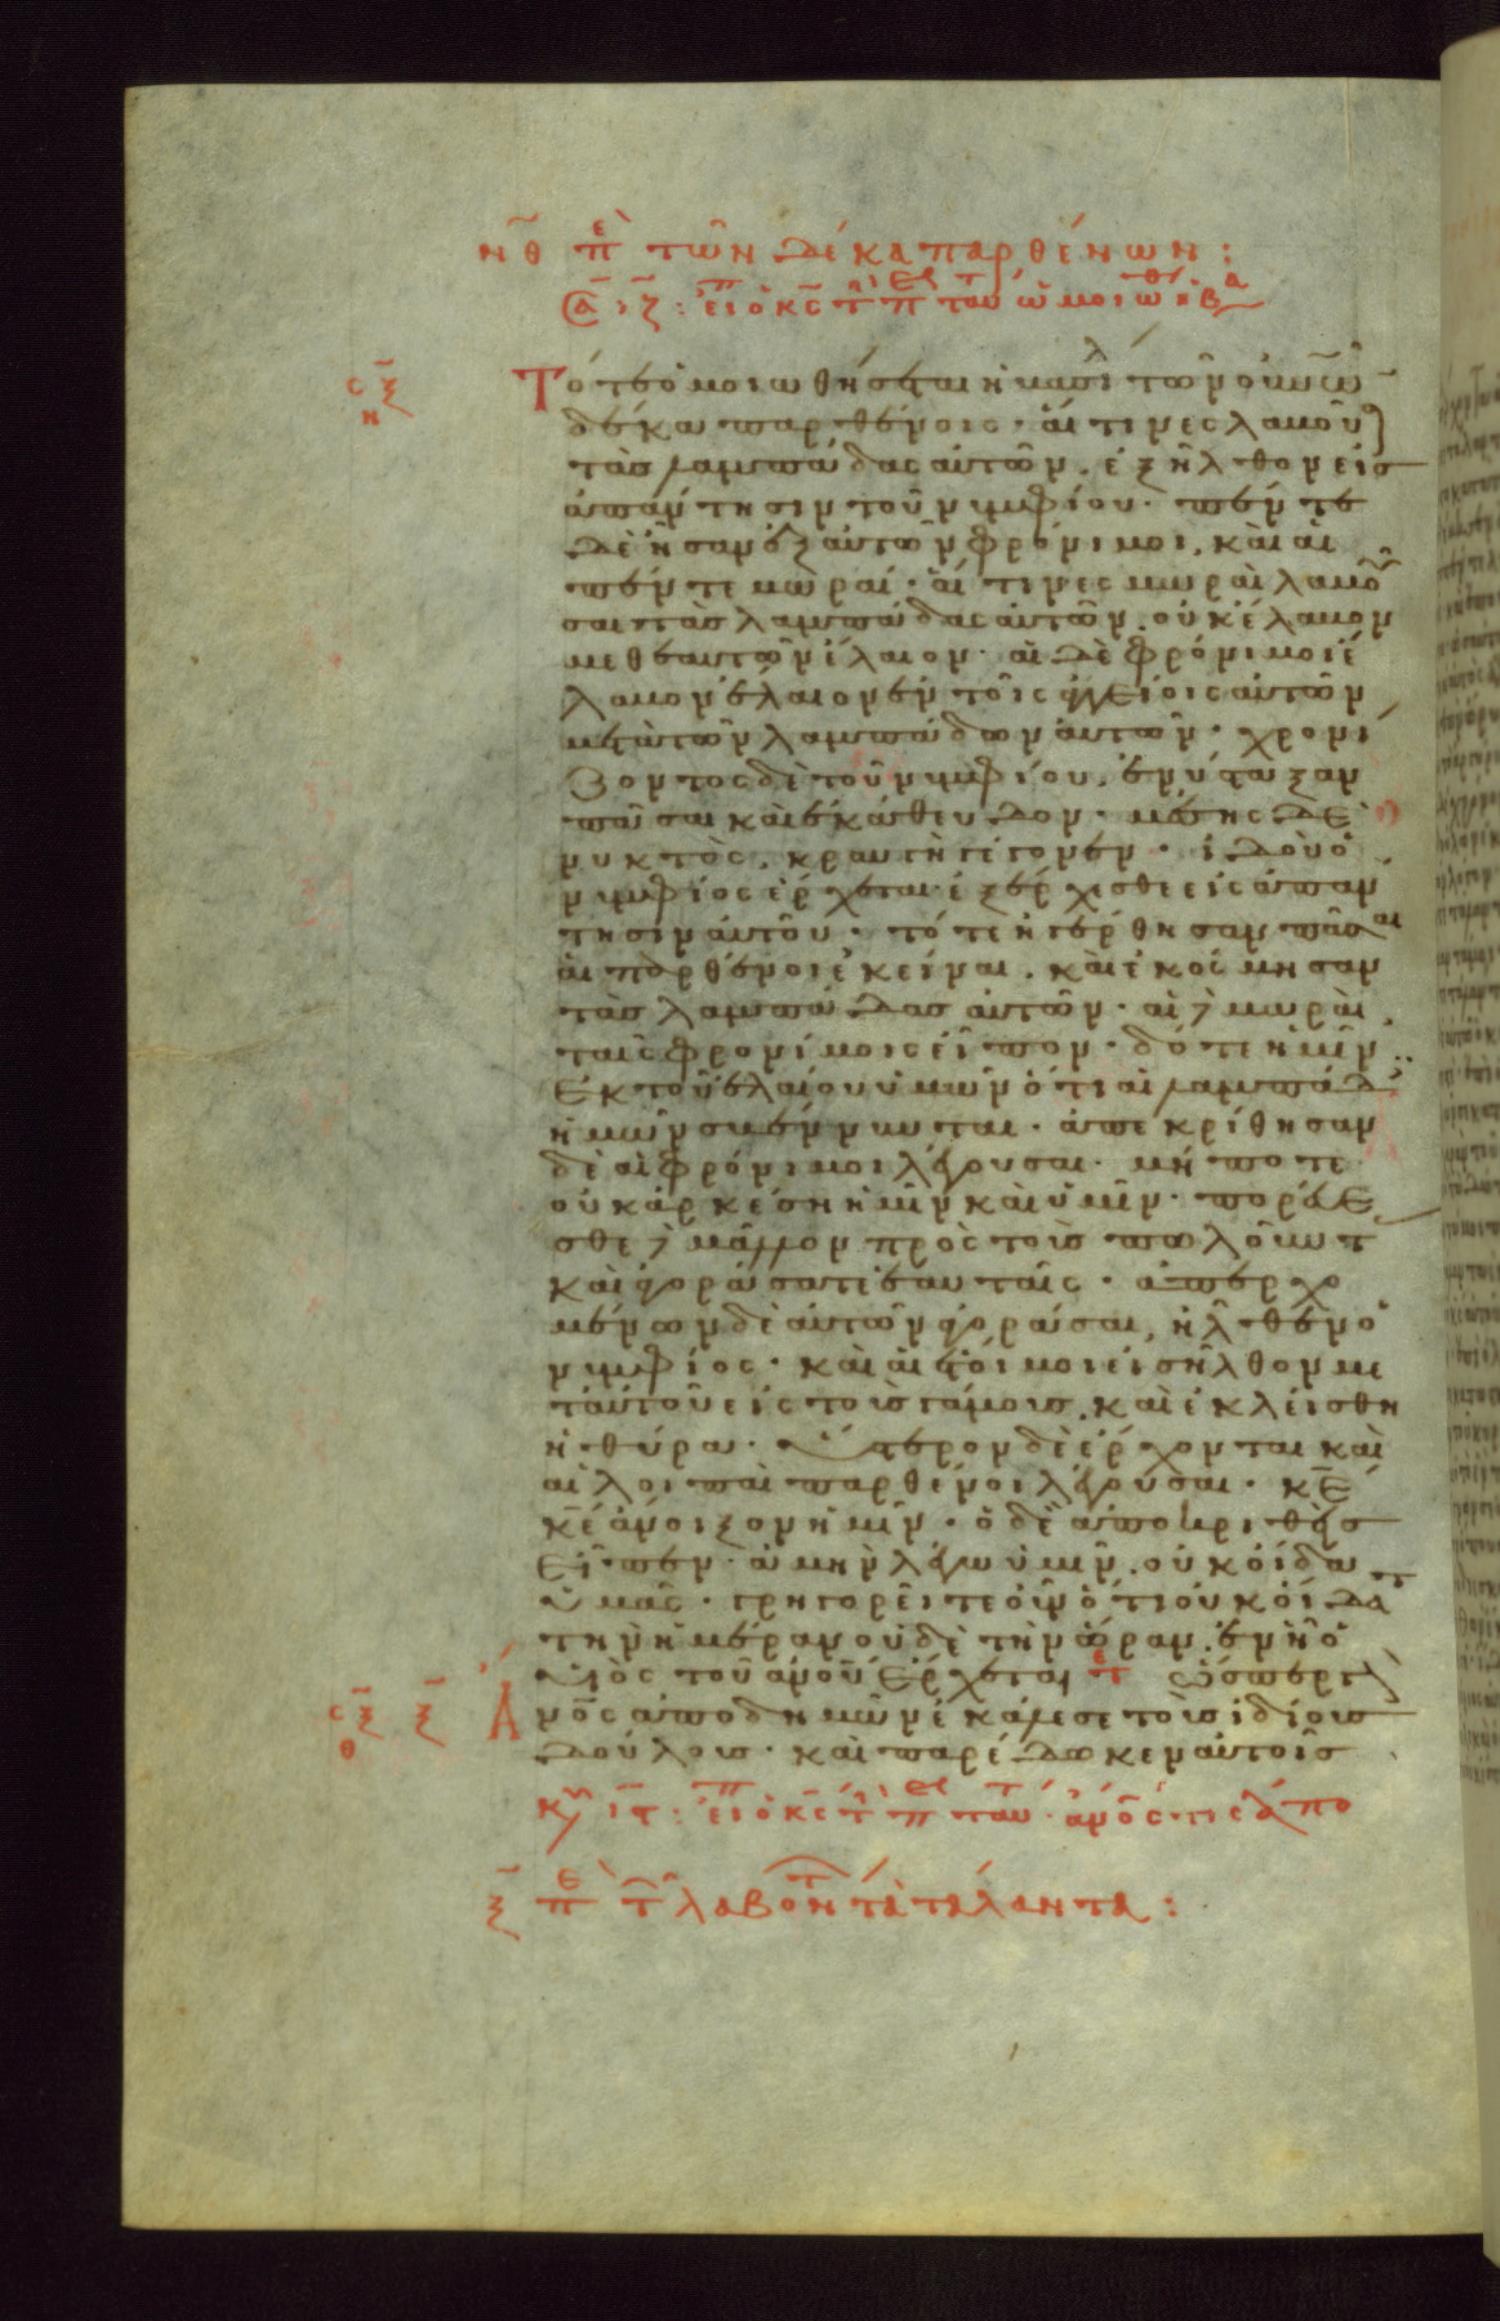 νθ πε τῶν δέκα παρθένων:
Τότε ὁμοιωθήσεται ἡ βασιλ τῶν οὐνῶ
δέκα παρθένοις· αἵτινες λαβοῦ
τὰς λαμπάδας αὐτῶν, ἐξῆλθον εἰς
ἀπάντησιν τοῦ νυμφίου· πέντε
δὲ ἦσαν ἐξ αὐτῶν φρόνιμοι, καὶ αἱ
πέντε μωραί· αἵτινες μωραὶ λαβοῦ
σαι τὰς λαμπάδας αὐτῶν, οὐκ ἔλαβον
μεθ ἑαυτῶν ἔλαιον· αἱ δὲ φρόνιμοι ἔ
λαβον ἔλαιον ἐν τοῖς ἀγγείοις αὐτῶν
μετὰ τῶν λαμπάδων αὐτῶν· χρονί
ζοντος δὲ τοῦ νυμφίου, ἐνύσταξαν
πᾶσαι καὶ ἐκάθευδον· μέσης δὲ
νυκτὸς, κραυγὴ γέγονεν· ἰδοὺ ὁ
νυμφίος ἔρχεται ἐξέρχεσθε εἰς ἀπάν
τησιν αὐτοῦ· τότε ἠγέρθησαν πᾶσαι
αἱ παρθένοι ἐκεῖναι, καὶ ἐκόσμησαν
τὰς λαμπάδας αὐτῶν· αἱ δὲ μωραὶ
ταῖς φρονίμοις εἶπον· δότε ἡμῖν
ἐκ τοῦ ἐλαίου ὑμῶν ὅτι αἱ λαμπάδ
ἡμῶν σβέννυνται· ἀπεκρίθησαν
δὲ αἱ φρόνιμοι λέγουσαι· μήποτε
οὐκ ἀρκέσῃ ἡμῖν καὶ ὑμῖν· πορεύε
σθε δὲ μᾶλλον πρὸς τοὺς πωλοῦντ
καὶ ἀγοράσατε ἑαυταῖς· ἀπερχο
μένων δὲ αὐτῶν ἀγοράσαι, ἦλθεν ὁ
νυμφίος· καὶ αἱ ἕτοιμοι εἰσῆλθον με
τ αὐτοῦ εἰς τοὺς γάμους, καὶ ἐκλείσθη
ἡ θύρα· ὕστερον δὲ ἔρχονται καὶ
αἱ λοιπαὶ παρθένοι λέγουσαι· κε
κε ἄνοιξον ἡμῖν· ὁ δὲ ἀποκριθεὶς
εἶπεν· ἀμὴν λέγω ὑμῖν, οὐκ οἶδα
ὑμᾶς· γρηγορεῖτε οὖν ὅτι οὐκ οἴδατ
τὴν ἡμέραν οὐδὲ τὴν ὥραν, ἐν ᾗ ὁ
υἱὸς τοῦ ανου ἔρχεται τε ὥσπερ γ
Ἀνος ἀποδημῶν ἐκάλεσε τοὺς ἰδίους
δούλους· καὶ παρέδωκεν αὐτοῖς
ξ πε τ λαβόντ τὰ τάλαντα: